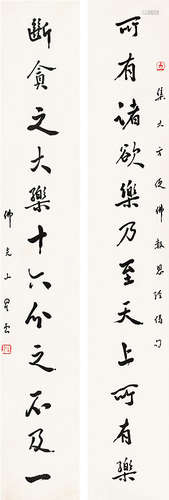 集大方便佛報恩经偈句
所有諸欲樂乃至天上所有樂
斷貪之大樂十六分之不及一
佛光山星雲